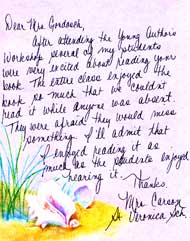 Dear Mrs. Gordosch,
After attending the Young Author's
Workshop several of my students
were very excited about reading your
book. The entire class enjoyed the
book so much that we couldn't
read it while anyone was absent.
They were afraid they would miss
something. I'll admit that
I enjoyed reading it as
much as the students enjoyed
hearing it.
Thanks.
Mrs. Carson
St. Veronica Sch.